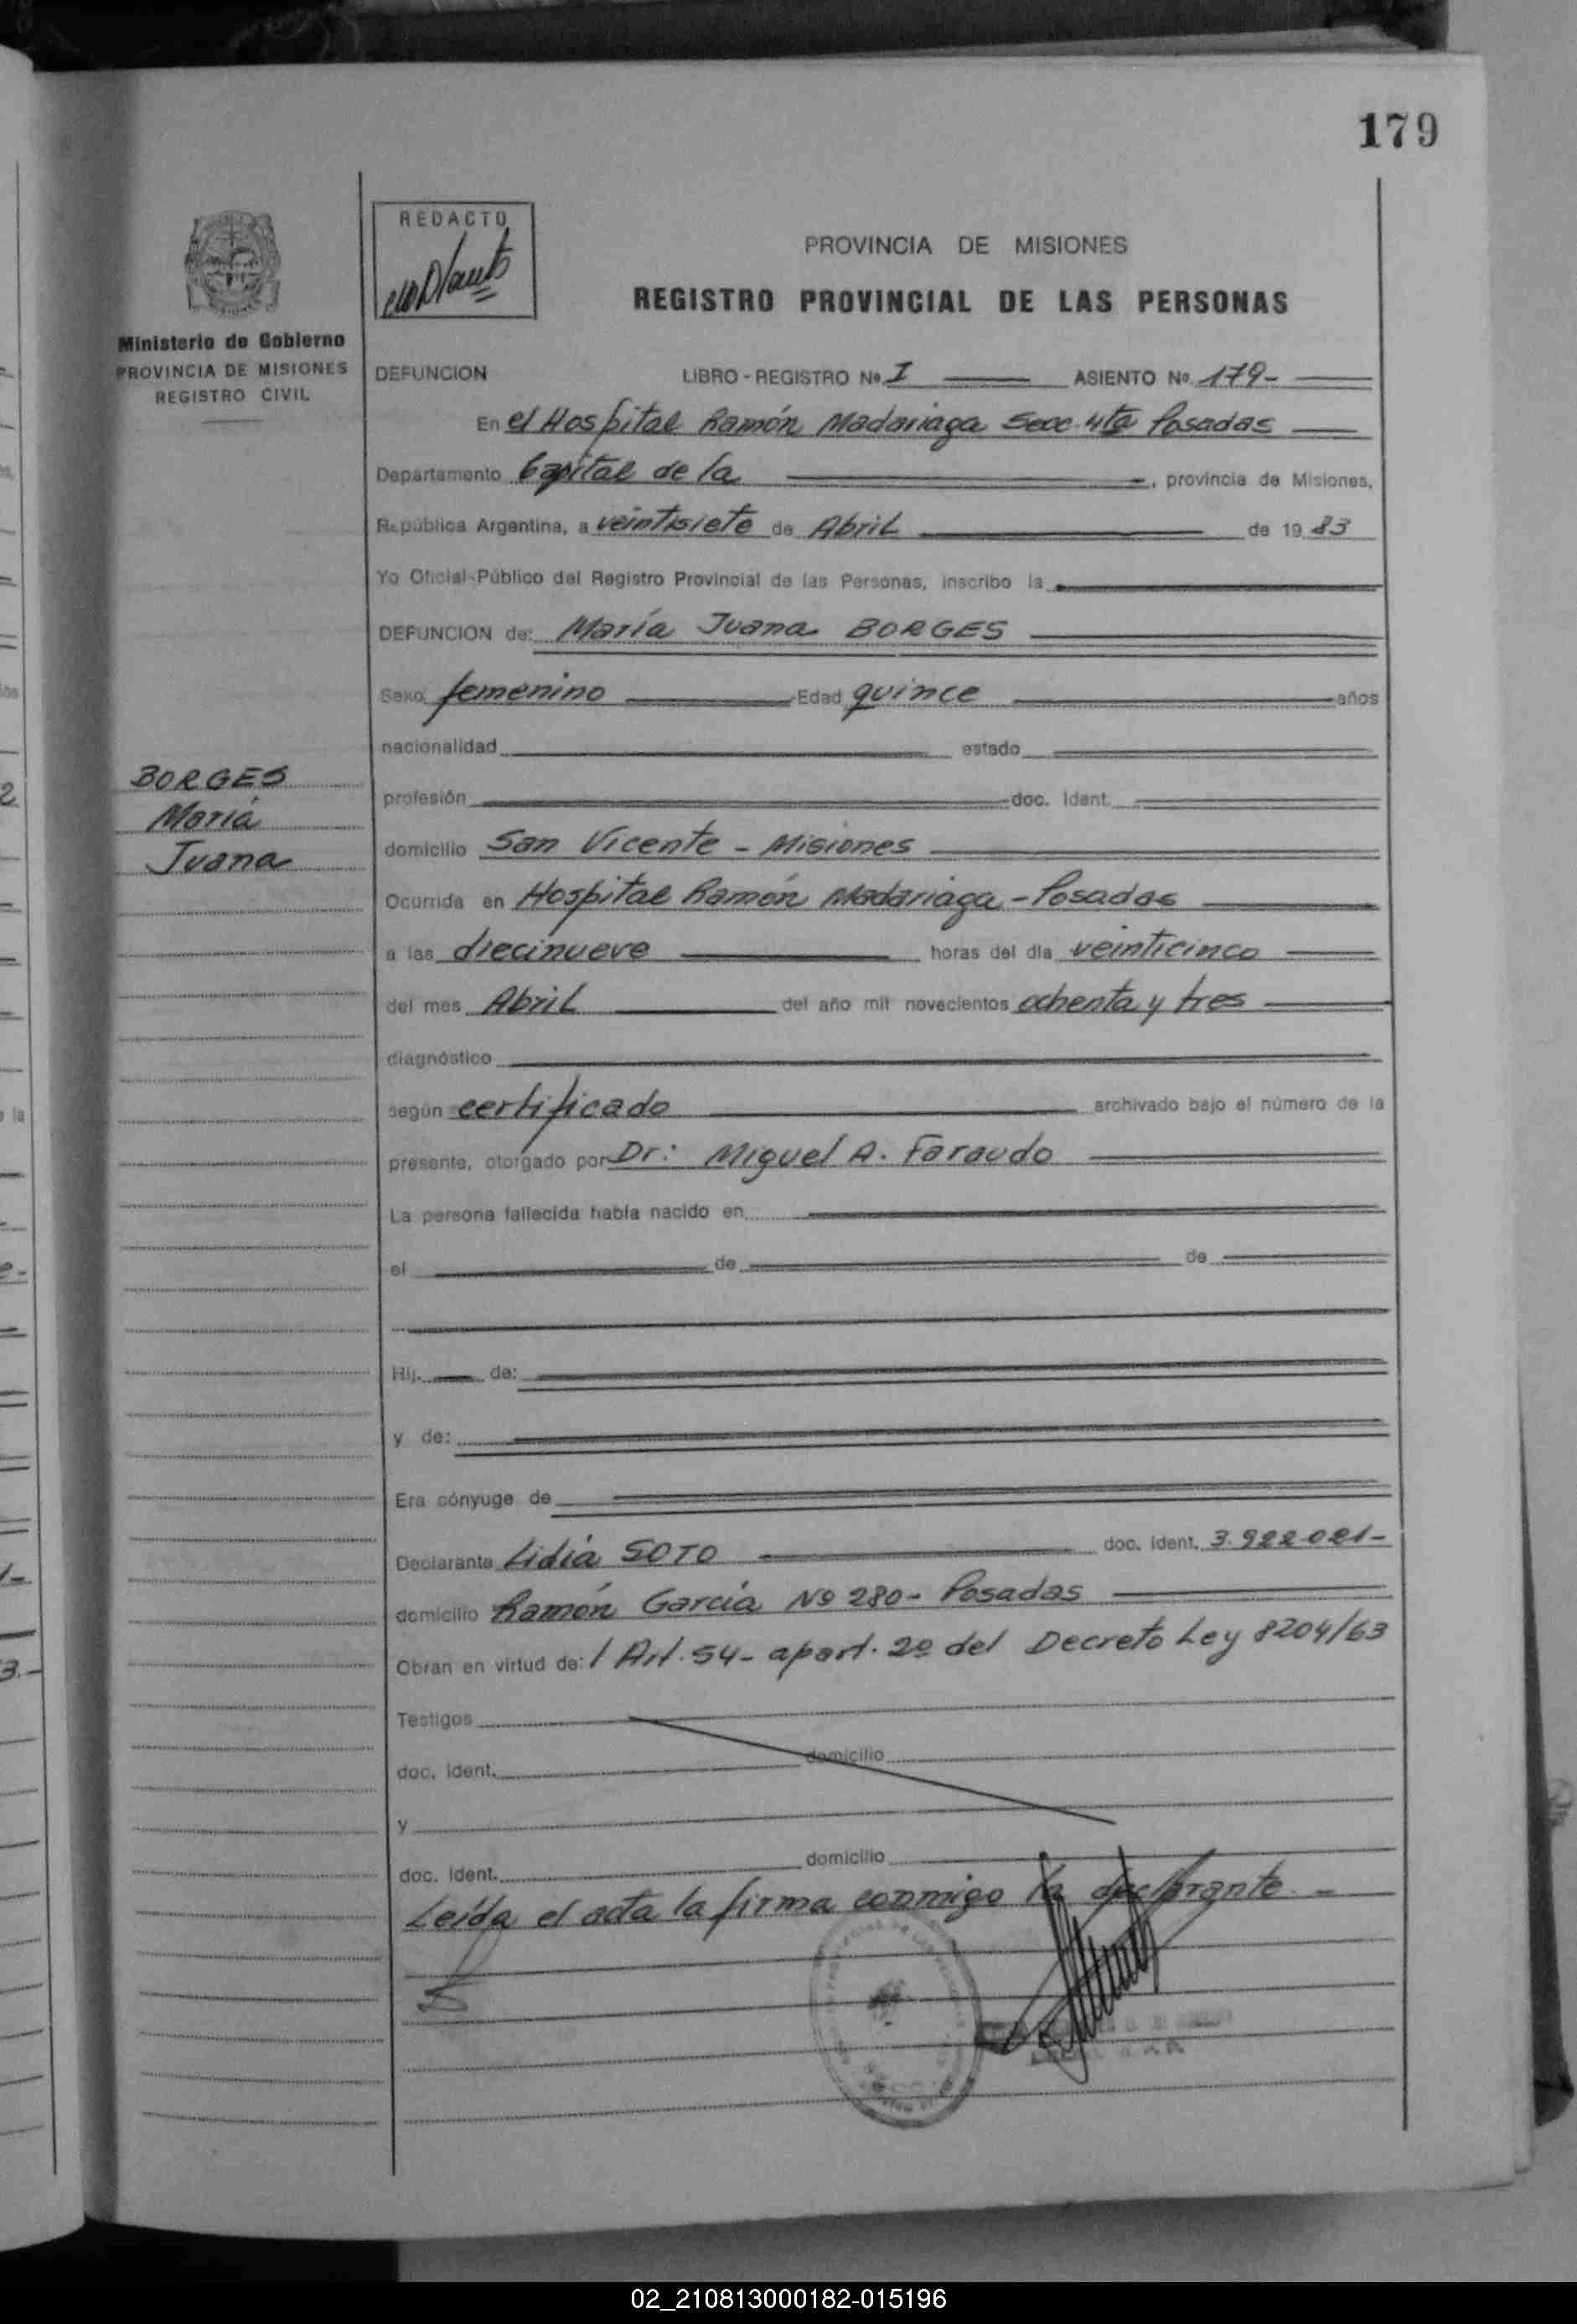 179
REDACTO
PROVINCIA DE MISIONES
REGISTRO PROVINCIAL DE LAS PERSONAS
Ministerio de Gobierno
PROVINCIA DE MISIONES
REGISTRO CIVIL
DEFUNCION LIBRO - REGISTRO No I ASIENTO No 179-
En el Hospital Ramón Madariaga Secc. 4ta Posadas
Departamento Capital de la , provincia de Misiones,
República Argentina, a veintisiete de Abril de 1983
Yo Oficial-Público del Registro Provincial de las Personas, inscribo la
DEFUNCION de: María Juana BORGES
Sexo femenino Edad quince años
nacionalidad estado
BORGES
María
Juana
profesión doc. Ident.
domicilio San Vicente - Misiones
Ocurrida en Hospital Ramón Madariaga - Posadas
a las diecinueve horas del día veinticinco
del mes Abril del año mil novecientos ochenta y tres
diagnóstico
según certificado archivado bajo el número de la
presente, otorgado por Dr: Miguel A. Faraudo
La persona fallecida había nacido en
el de de
Hij. de:
y de:
Era cónyuge de
Declarante Lidia SOTO doc. Ident. 3.922.021-
domicilio Ramón García No 280- Posadas
Obran en virtud de: / Art. 54- apart. 2º del Decreto Ley 8204/63
Testigos
doc. Ident. domicilio
y
doc. Ident. domicilio
Leída el acta la firma conmigo la declarante. -
02_210813000182-015196